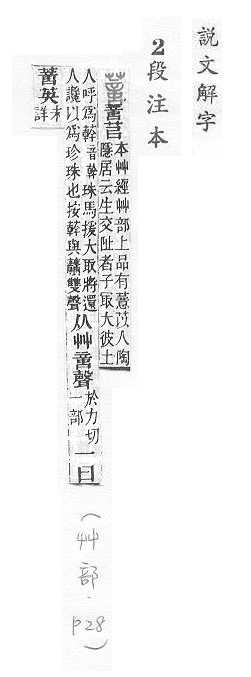 說文解字
2段注本
苢本艸經艸部上品有薏苡人陶
隱居云生交阯者子冣大彼土
人呼爲音珠馬援大取將還
人讒以爲珍珠也按與雙聲
从艸聲於力切
一部
一曰
英未
詳
(艸部.p28)